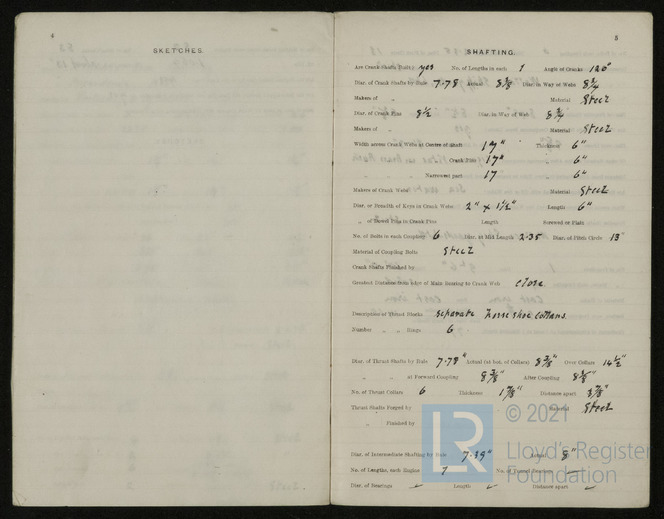 4
SKETCHES.
5
SHAFTING.
Are Crank Shafts Built? yes No. of Lengths in each 1 Angle of Cranks 120°
Diar. of Crank Shafts by Rule 7.78 Actual 8 3/8 Diar. in Way of Webs 8 3/4
Makers of „ Material Steel
Diar. of Crank Pins 8 1/2 Diar. in Way of Web 8 3/4
Makers of „ Material Steel
Width across Crank Webs at Centre of Shaft 17" Thickness 6"
„ „ Crank Pins 17" „ 6"
„ „ Narrowest part 17 „ 6"
Makers of Crank Webs Material Steel
Diar. or Breadth of Keys in Crank Webs 2" x 1 1/2" Length 6"
„ of Dowel Pins in Crank Pins Length Screwed or Plain
No. of Bolts in each Coupling 6 Diar. at Mid Length 2.35 Diar. of Pitch Circle 13"
Material of Coupling Bolts Steel
Crank Shafts Finished by
Greatest Distance from edge of Main Bearing to Crank Web close
Description of Thrust Blocks separate horse shoe collars.
Number „ „ Rings 6
Diar. of Thrust Shafts by Rule 7.78" Actual (at bot. of Collars) 8 3/8" Over Collars 14 1/2"
„ „ at Forward Coupling 8 3/8" After Coupling 8 3/8"
No. of Thrust Collars 6 Thickness 1 7/8" Distance apart
Thrust Shafts Forged by Material Steel
„ Finished by
Diar. of Intermediate Shafting by Rule 7.39" Actual 8"
No. of Lengths, each Engine 7 No. of Tunnel Bearers —
Diar. of Bearings ✓ Length ✓ Distance apart ✓
© 2021
LR
Lloyd's Register
Foundation